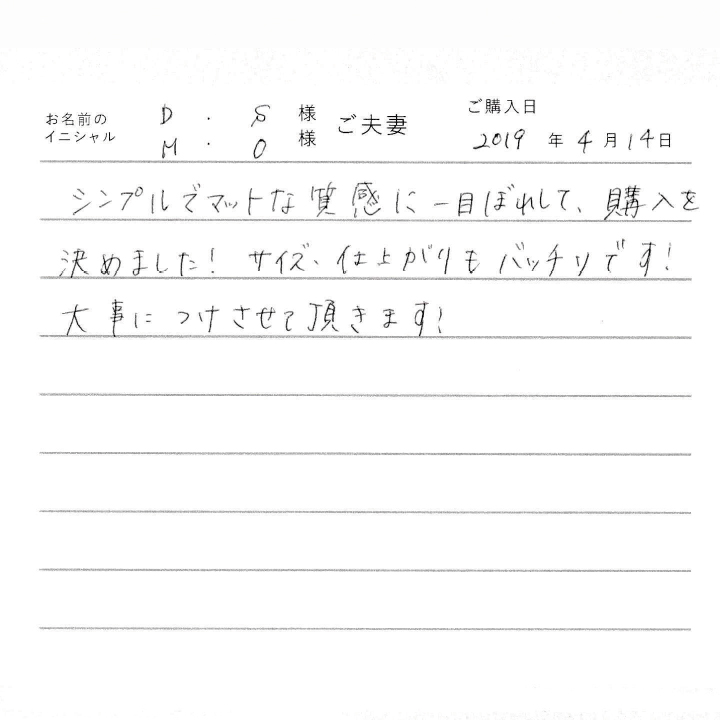 お名前の
イニシャル
D . S 様
M . O 様
ご夫妻
ご購入日
2019 年 4 月 14 日
シンプルでマットな質感に一目ぼれして、購入を
決めました! サイズ、仕上がりもバッチリです!
大事につけさせて頂きます!